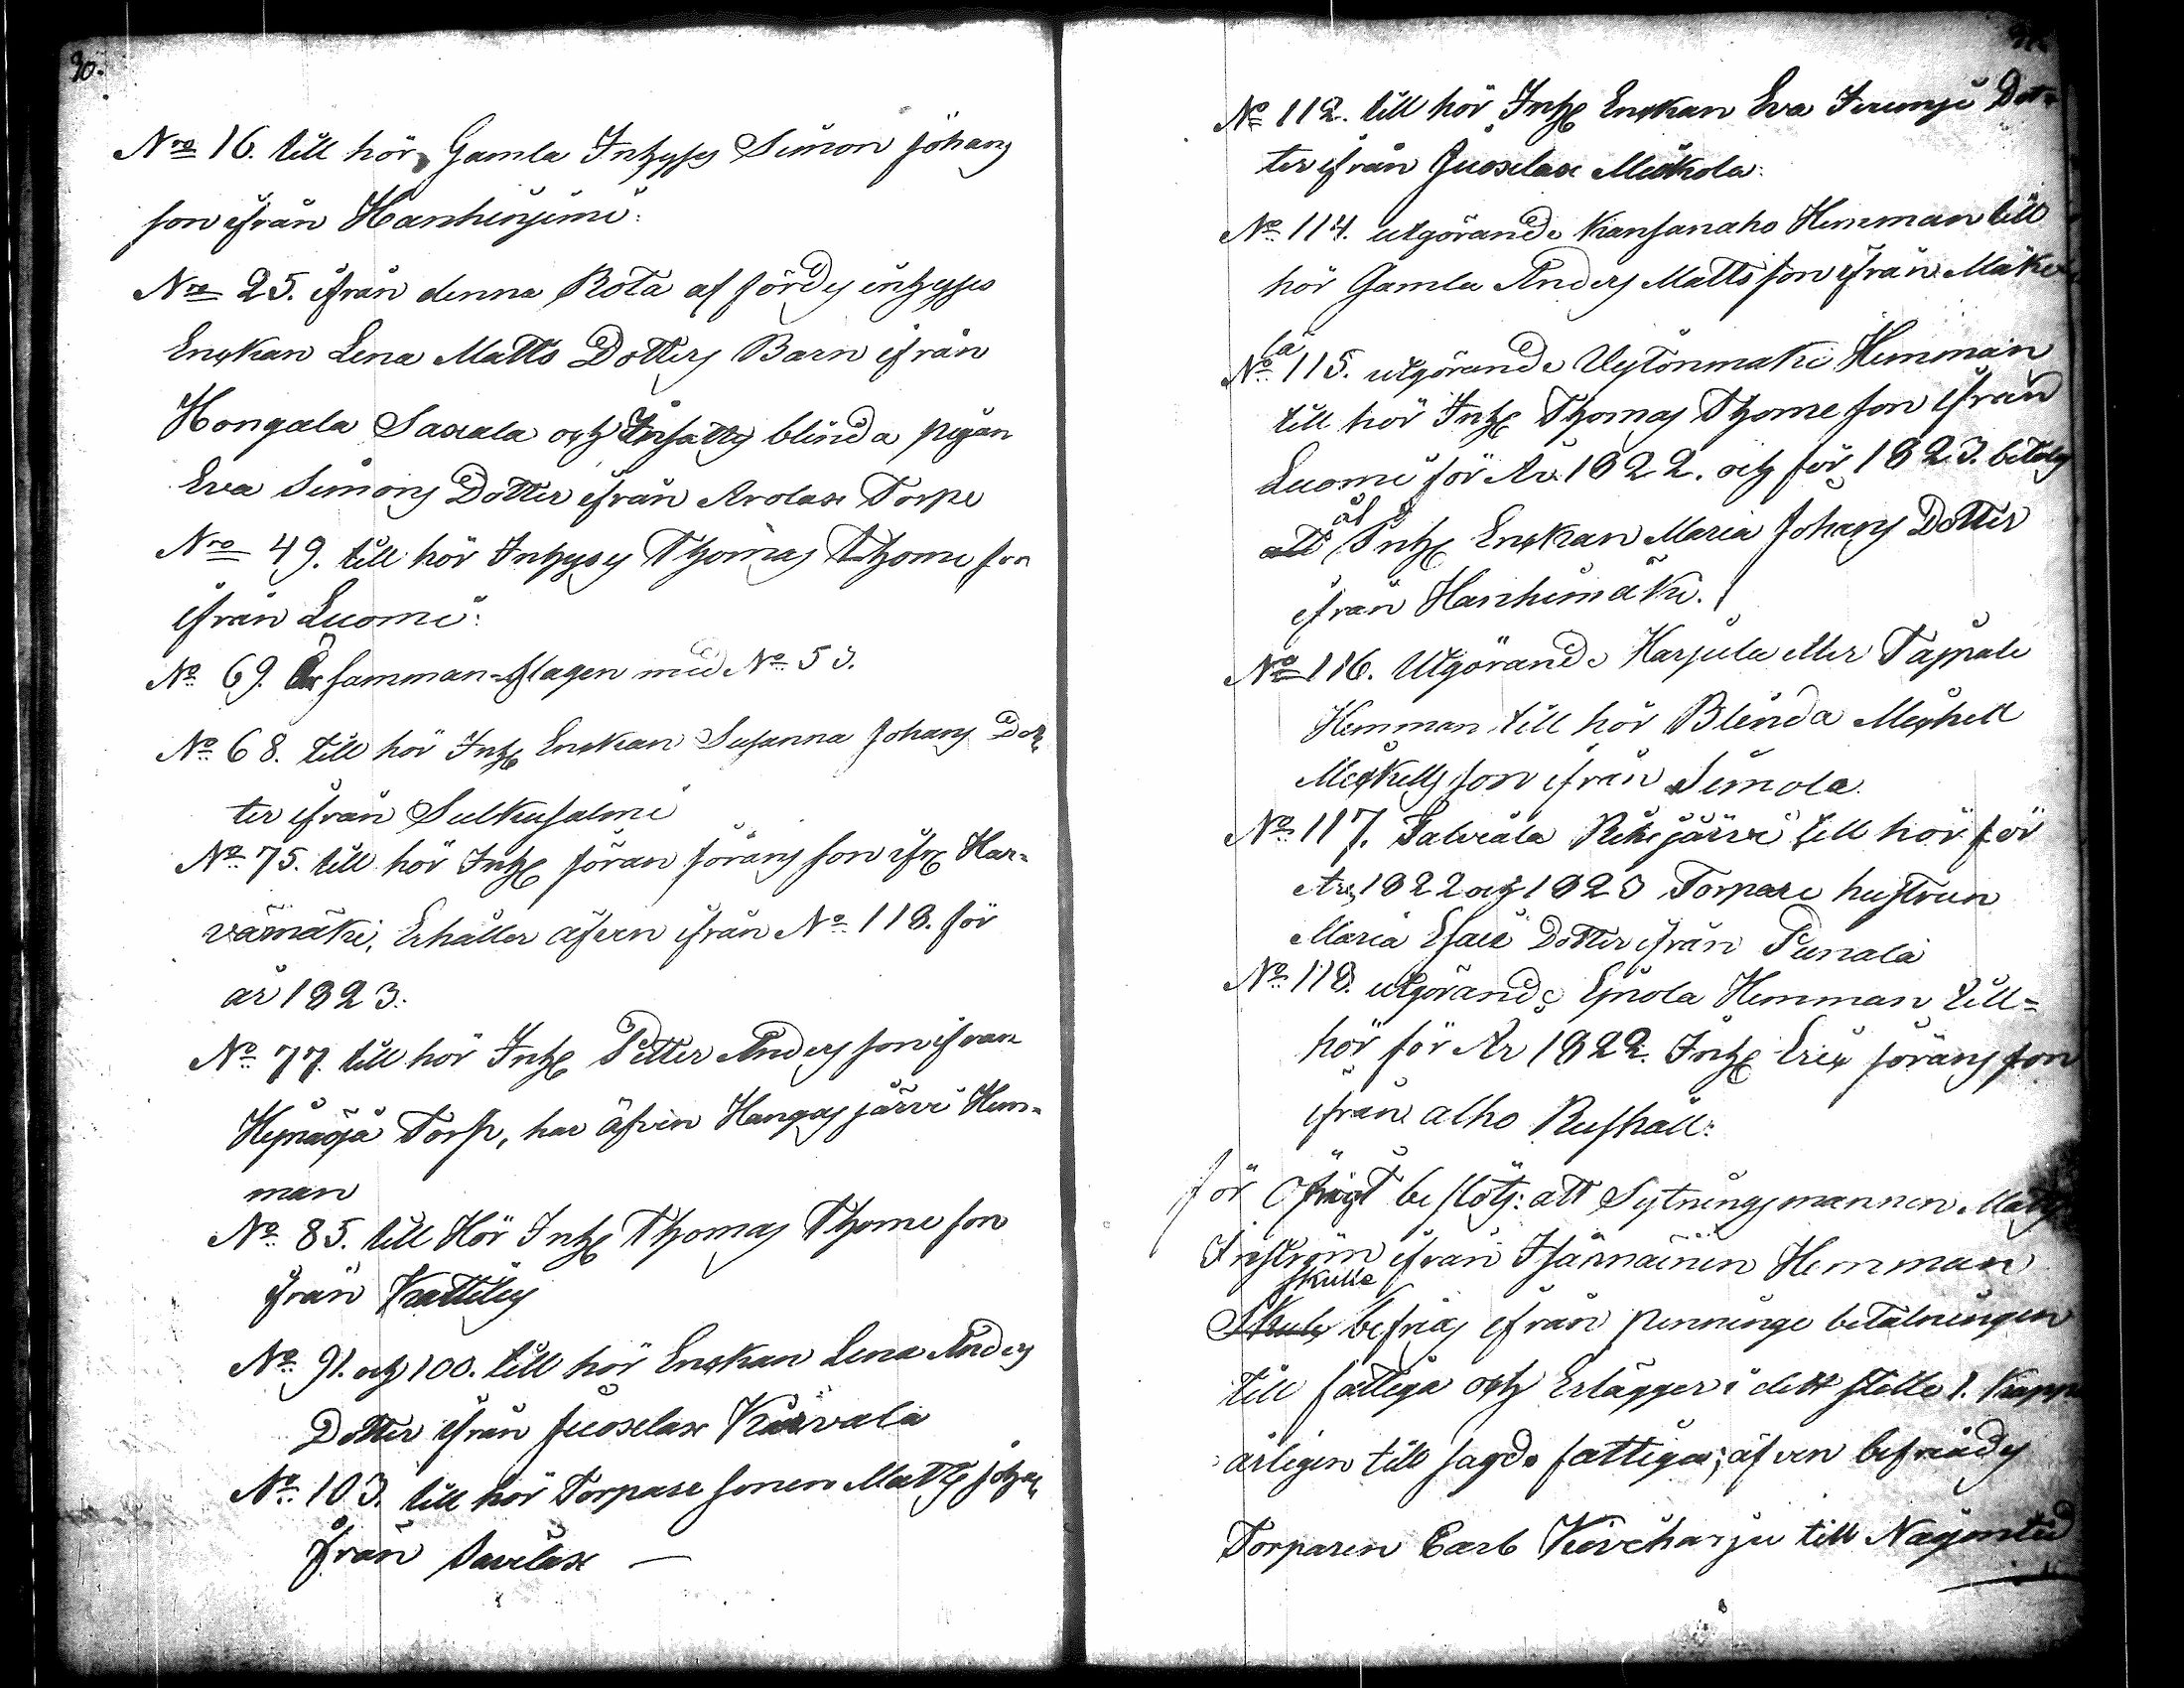 30.
Nro 16. till hör Gamla Inhyses Simon Johans
son ifrån Hanhinjemi:
Nro 25. ifrån denna Rota af fördes inhyses
Enckan Lena Matts Dotters Barn ifrån
Hongala Saxala och Insattes blinda pigan
Eva Simons Dotter ifrån Arolax Torpe
Nro 49. till hör Inhyses Thomas Thome son
ifrån Luomi:
No 69. Är samman-slagen med No 53.
No 68. till hör Inh Enckan Susanna Johans Dot
ter ifrån Sulkusalmi
No 75. till hör Inh Jöran Jörans son ifr Har=
vamäki, Erhåller äfven ifrån No 118. för
år 1823:
No 77. till hör Inh Petter Anders son ifrån
Heinäoja Torp, har äfven Hangasjärvi Hem=
man
No 85. till Hör Inh Thomas Thome son
ifrån Kattiles
No 91. och 100. till hör Enckan Lena Anders
Dotter ifrån Juoxelax Kärvala
No 103. till hör Torpare sonen Matts Johan
från Savelax —
No 112. till hör Inh Enckan Eva Jeremje Dot=
ter ifrån Juoxelax Meskola:
No 114. utgörande Kansanaho Hemman till
hör Gamla Anders Mattsson ifrån Mäke
lä
No 115. utgörande Ulytönmäki Hemman
till hör Inh Thomas Thome son ifrån
Luomi för År 1822. och för 1823. betales
att åt Inh Enckan Maria Johans Dotter
ifrån Hanhimäki.
No 116. Utgörande Harjula eller Tappale
Hemman till hör Blinda Michell
Michells son ifrån Simola.
No 117. Salviala Rihijärvi till hör för
År 1822 och 1823 Torpare hustrun
Maria Esaie Dotter ifrån Punala
No 118. utgörande Epola Hemman till=
hör för År 1822. Inh Eric Jörans son
ifrån alho Rushåll:
för Öfrigt beslöts: att Sytningsmannen Matts
ifrån Isännäinen Hemman
skulle
Skuls befrias ifrån penninge betalningen
till fattiga och Erlägger i dett ställe 1. Kappe
årligen till sagde fattiga; äfven befriades
Torparen Carl Kiviharju till Någontid